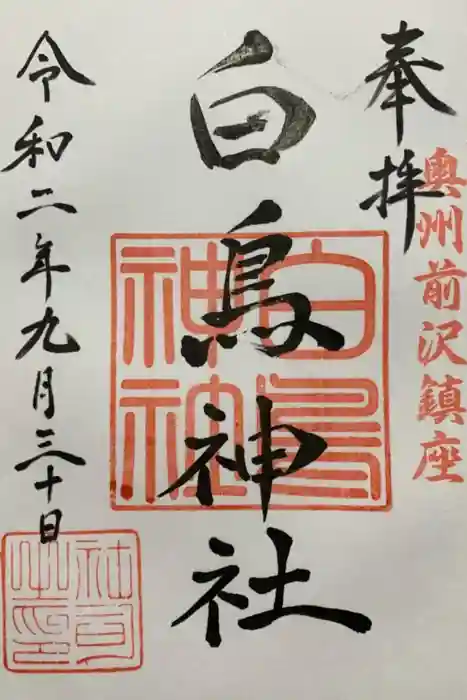 奉拝
奥州前沢鎮座
白鳥神社
白鳥神社
令和二年九月三十日
社司之印